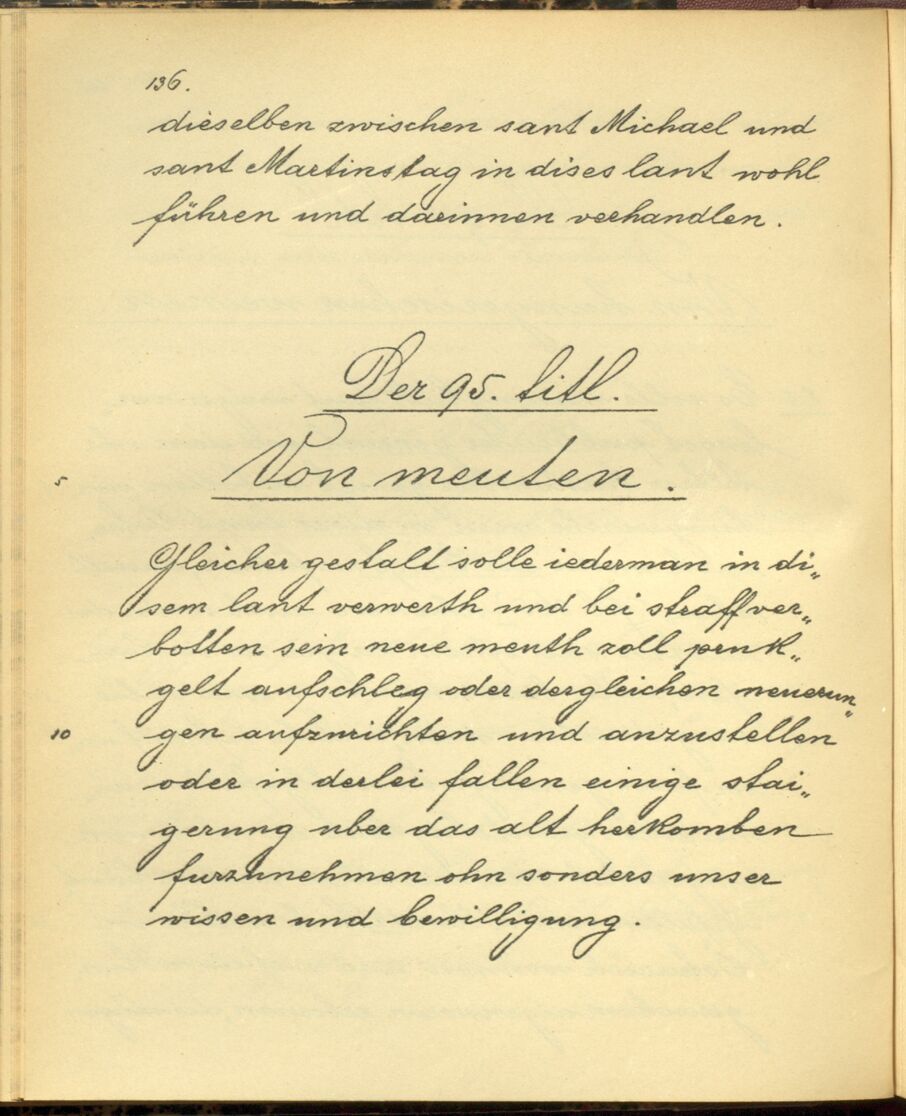 136.
dieselben zwischen sant Michael und
sant Martinstag in dises lant wohl
führen und darinnen verhandlen.
Der 95. titl.
5
Von meuten.
Gleicher gestalt solle iederman in di„
sem lant verwerth und bei straff ver„
botten sein neue meuth zoll pruk„
gelt aufschleg oder dergleichen neuerun„
10
gen aufzurichten und anzustellen
oder in derlei fallen einige stai„
gerung uber das alt herkomben
furzunehmen ohn sonders unser
wissen und bewilligung.